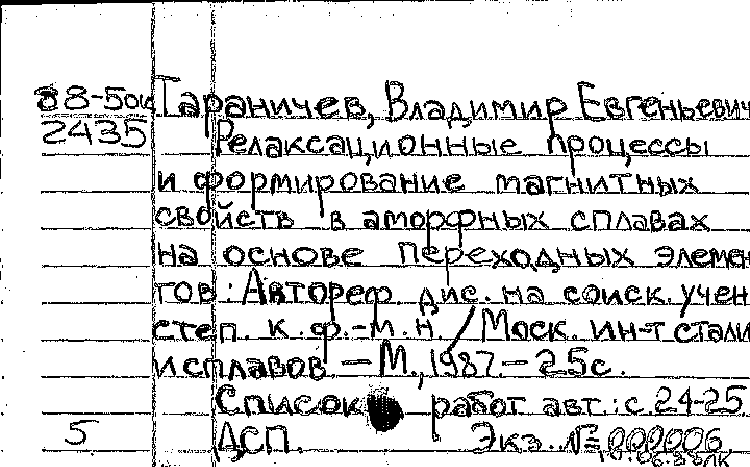 88-50а Тараничев, Владимир Евгеньевич
2435 Релаксационные процессы
и формирование магнитных
свойств в аморфных сплавах
на основе переходных элемен
тов: Автореф. дис. на соиск. учен
степ. к.ф.-м.н. / Моск. ин-т стали
и сплавов. — М., 1987. — 25 с.
Список работ авт.: с. 24-25
5 ДСП. Экз. № 000006